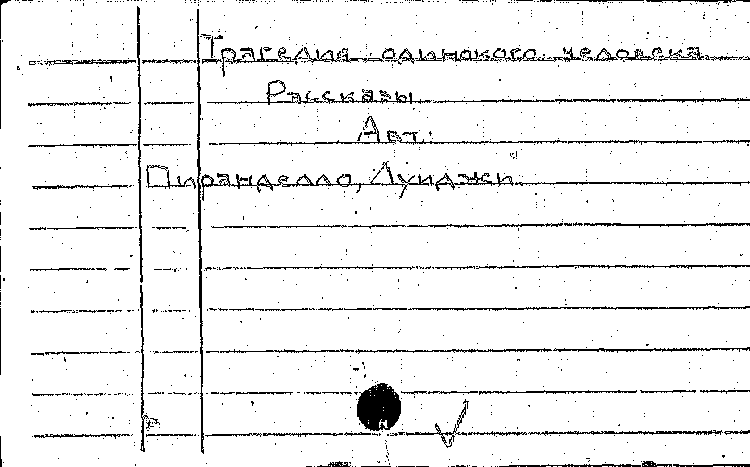 Трагедия одинокого человека
Рассказы
Авт.:
Пиранделло, Луиджи.